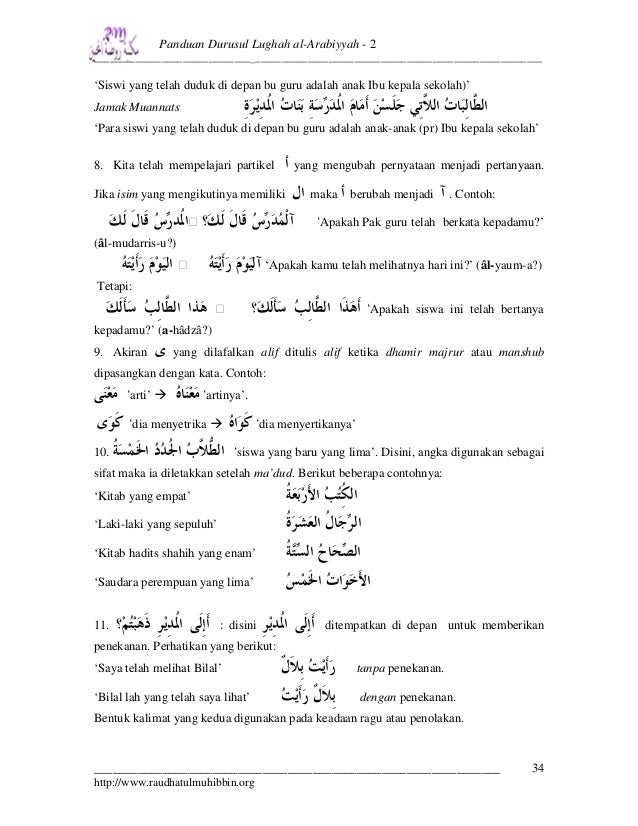 Panduan Durusul Lughah al-Arabiyyah - 2
‘Siswi yang telah duduk di depan bu guru adalah anak Ibu kepala sekolah)’
Jamak Muannats الطَّالِبَاتُ اللاَّتِي جَلَسْنَ أَمَامَ الْمُدَرِّسَةِ بَنَاتُ الْمُدِيْرَةِ
‘Para siswi yang telah duduk di depan bu guru adalah anak-anak (pr) Ibu kepala sekolah’
8. Kita telah mempelajari partikel أ yang mengubah pernyataan menjadi pertanyaan.
Jika isim yang mengikutinya memiliki ال maka أ berubah menjadi آ . Contoh:
الْمُدرِّسُ قَالَ لَكَ □ آلْمُدَرِّسُ قَالَ لَكَ؟ ‘Apakah Pak guru telah berkata kepadamu?’
(âl-mudarris-u?)
اليَوْمَ رَأَيْتَهُ □ آليَوْمَ رَأَيْتَهُ ‘Apakah kamu telah melihatnya hari ini?’ (âl-yaum-a?)
Tetapi:
هَذا الطَّالِبُ سَأَلَكَ □ أَهَذَا الطَّالِبُ سَأَلَكَ؟ ‘Apakah siswa ini telah bertanya
kepadamu?’ (a-hâdzâ?)
9. Akiran ى yang dilafalkan alif ditulis alif ketika dhamir majrur atau manshub
dipasangkan dengan kata. Contoh:
مَعْنَى ‘arti’ → مَعْنَاهُ ‘artinya’.
كَوَى ‘dia menyetrika → كَوَاهُ ‘dia menyertikanya’
10. الطُّلاَّبُ الْجُدُدُ الْخَمْسَةُ ‘siswa yang baru yang lima’. Disini, angka digunakan sebagai
sifat maka ia diletakkan setelah ma’dud. Berikut beberapa contohnya:
‘Kitab yang empat’ الكُتُبُ الأَرْبَعَةُ
‘Laki-laki yang sepuluh’ الرِّجَالُ العَشَرَةُ
‘Kitab hadits shahih yang enam’ الصِّحَاحُ السِّتَّةُ
‘Saudara perempuan yang lima’ الأَخَوَاتُ الْخَمْسُ
11. أَإِلَى الْمُدِيْرِ ذَهَبْتُمْ؟ : disini أَإِلَى الْمُدِيْرِ ditempatkan di depan untuk memberikan
penekanan. Perhatikan yang berikut:
‘Saya telah melihat Bilal’ رَأَيْتُ بِلاَلٌ tanpa penekanan.
‘Bilal lah yang telah saya lihat’ بِلاَلٌ رَأَيْتُ dengan penekanan.
Bentuk kalimat yang kedua digunakan pada keadaan ragu atau penolakan.
34
http://www.raudhatulmuhibbin.org